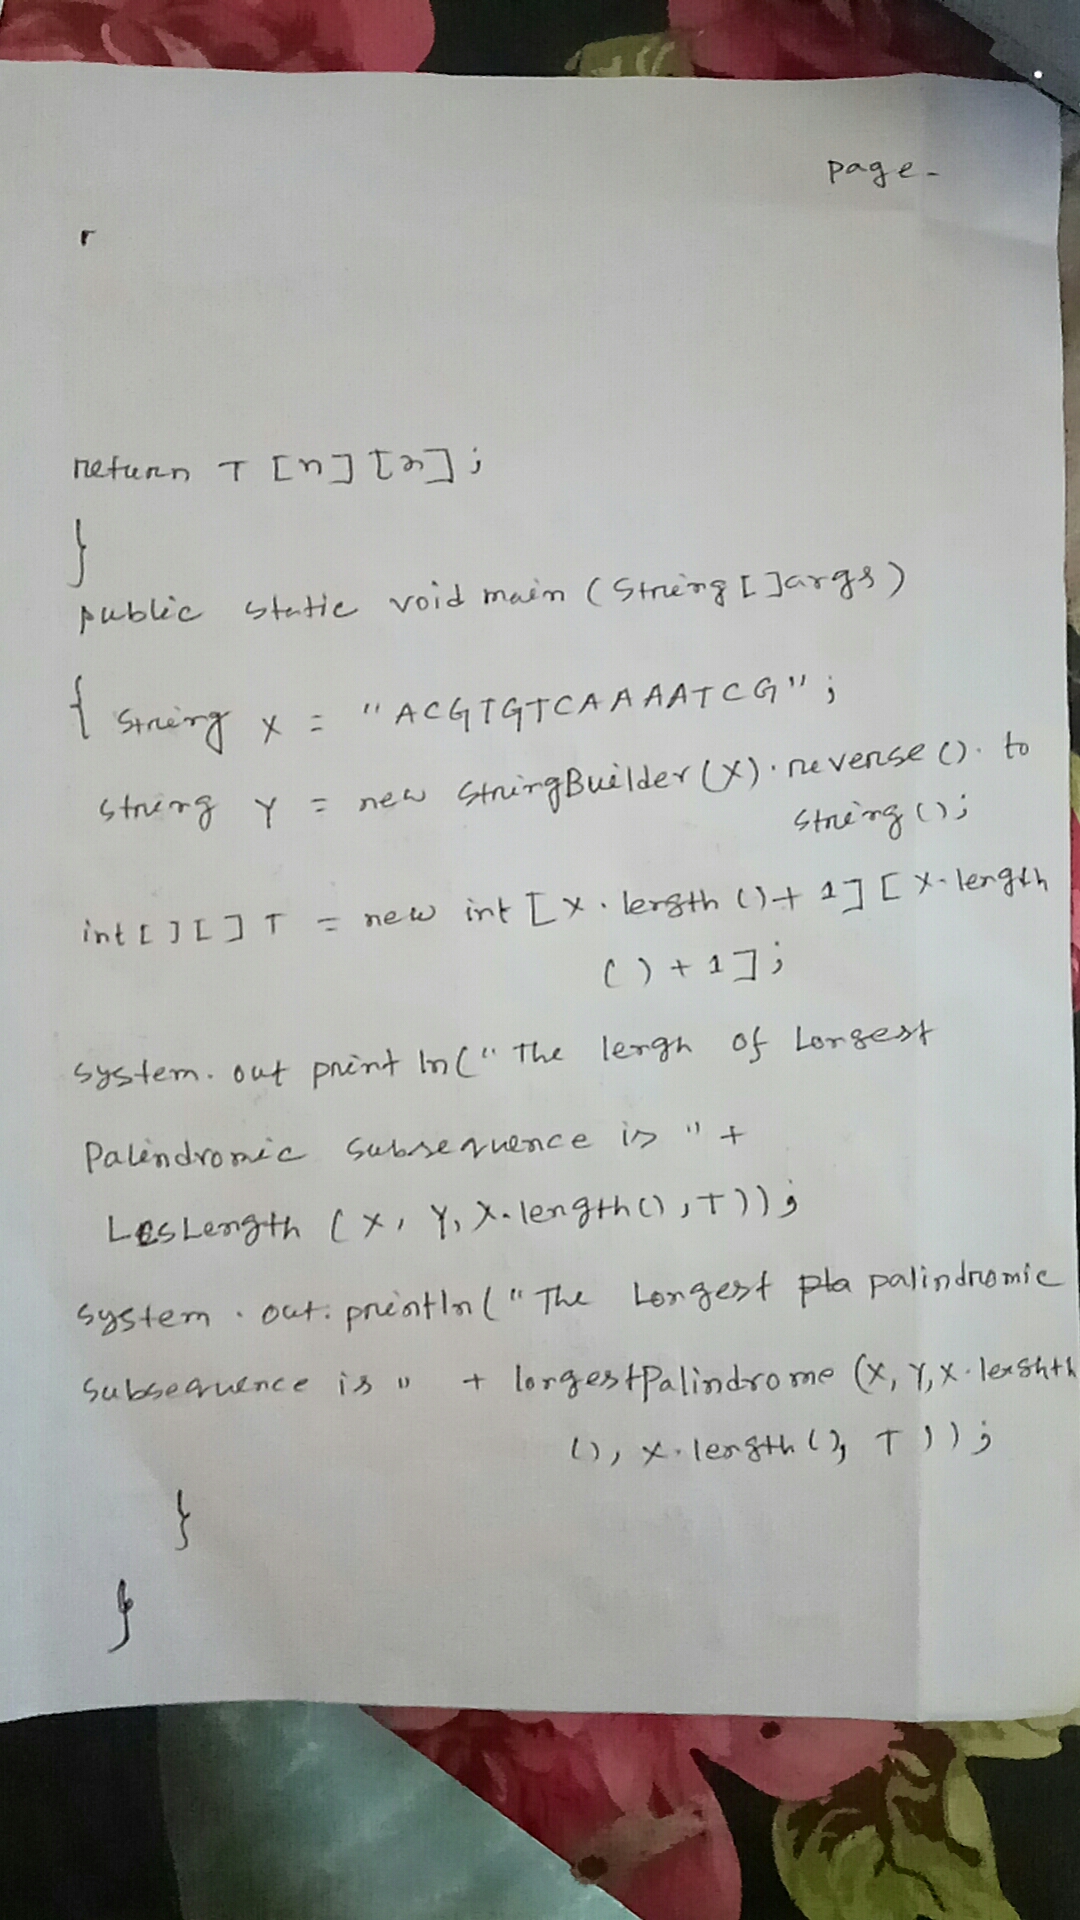 page-
return T [n] [n];
}
public static void main (String [ ]args)
{ String X = "ACGTGTCAAAATCG";
string Y = new StringBuilder (X). reverse (). to
string ();
int [ ] [ ] T = new int [ X. length () + 1] [ X. length
( ) + 1 ];
system. out print ln (" The lengh of Longest
Palindromic subsequence is " +
LCSLength (X, Y, X. length (), T));
system . out. println (" The Longest pla palindromic
subsequence is " + longestPalindrome (X, Y, X. length
(), X. length (), T ));
}
}